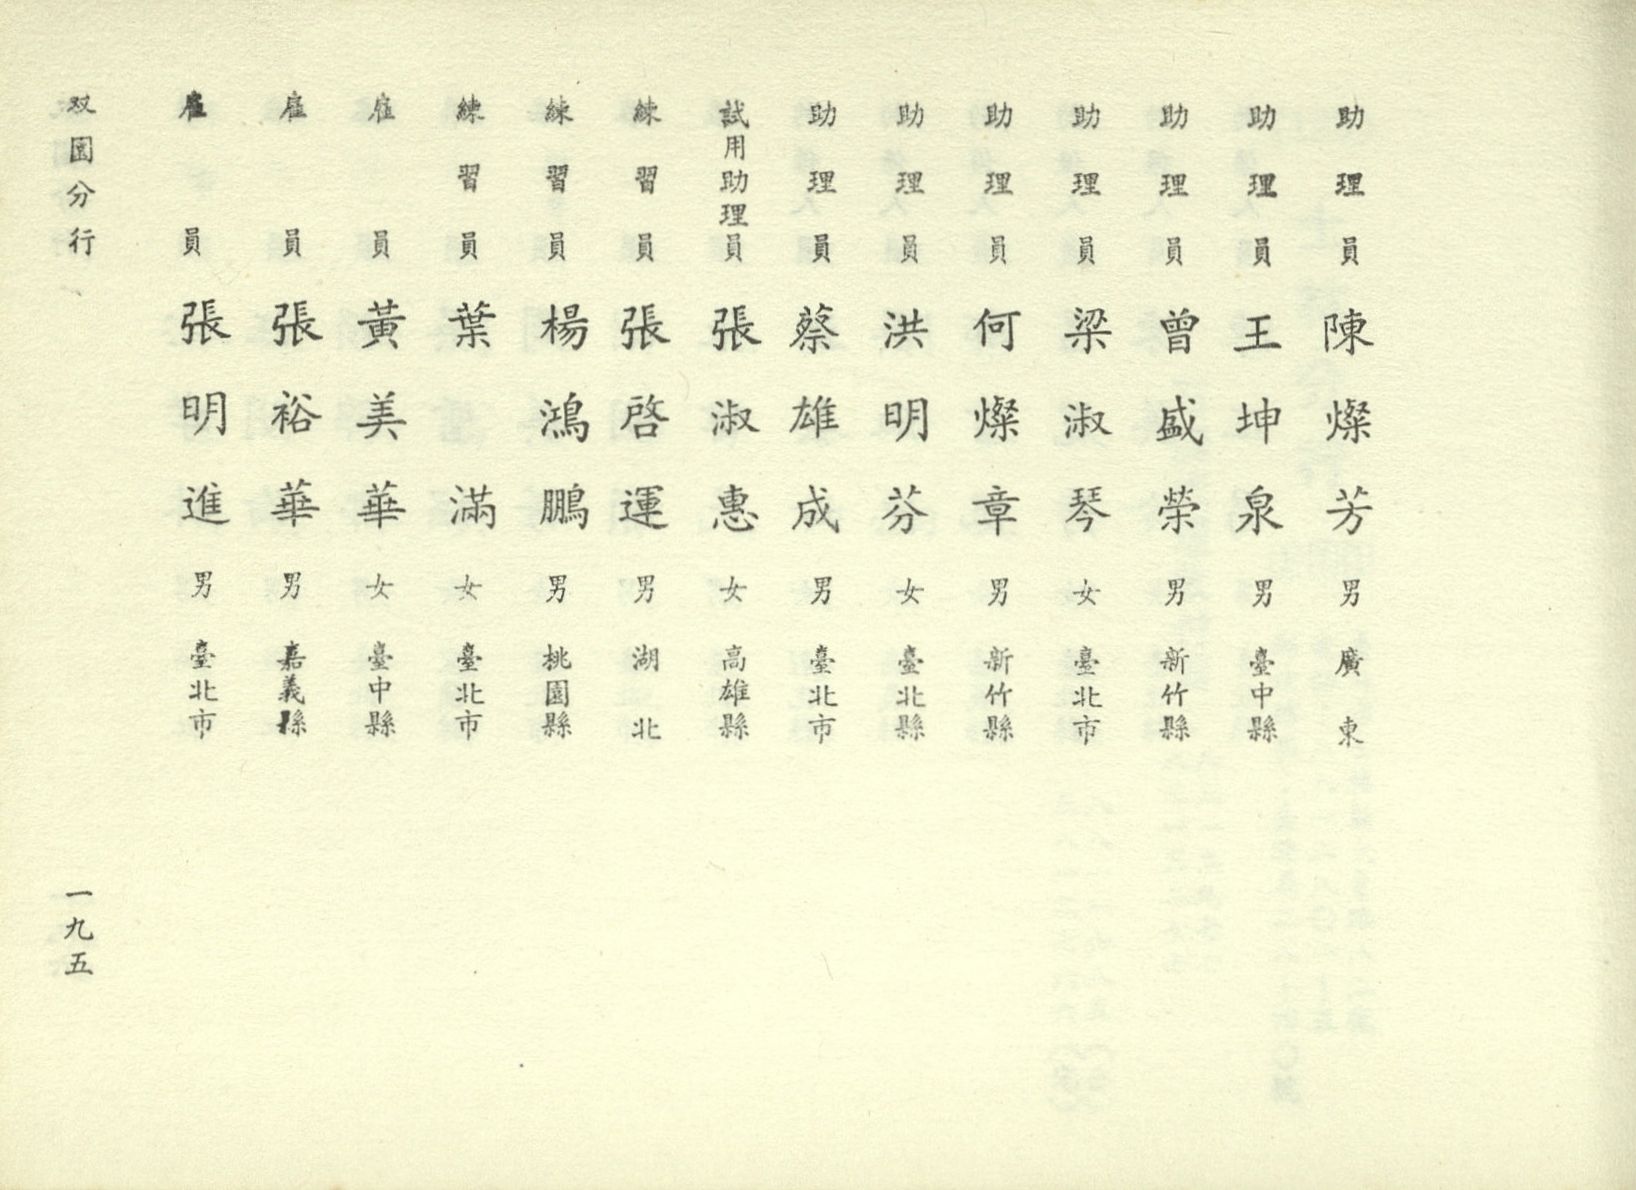 助理員 陳燦芳 男 廣東
助理員 王坤泉 男 臺中縣
助理員 曾盛榮 男 新竹縣
助理員 梁淑琴 女 臺北市
助理員 何燦章 男 新竹縣
助理員 洪明芬 女 臺北縣
助理員 蔡雄成 男 臺北市
試用助理員 張淑惠 女 高雄縣
練習員 張啓運 男 湖北
練習員 楊鴻鵬 男 桃園縣
練習員 葉滿 女 臺北市
雇員 黃美華 女 臺中縣
雇員 張裕華 男 嘉義縣
雇員 張明進 男 臺北市
双園分行
一九五